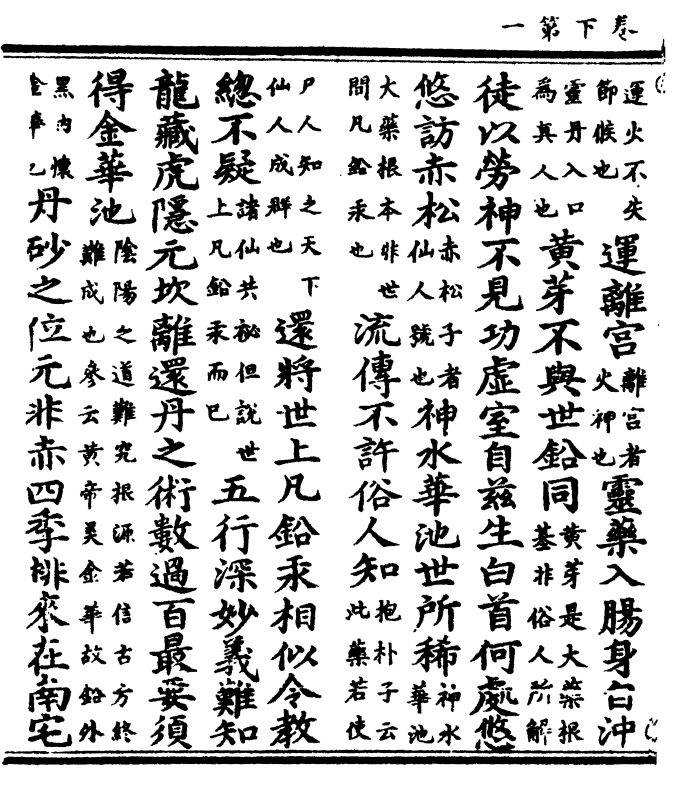 卷下第一
運火不失節候也運離宮離宮者火神也靈藥入腸身自沖
靈丹入口為真人也黃芽不與世鉛同黃芽是大藥根基非俗人所解
徒以勞神不見功虛室自茲生白首何處悠
悠訪赤松赤松子者仙人號也神水華池世所稀神水華池
大藥根本非世問凡鉛汞也流傳不許俗人知抱朴子云此藥若使
尸人知之天下仙人成群也還將世上凡鉛汞相似令教
總不疑諸仙共祕但說世上凡鉛汞而已五行深妙義難知
龍藏虎隱元坎離還丹之術數過百最要須
得金華池陰陽之道難究根源若信古方終難成也參云黃帝美金華故鉛外
黑內懷金華已丹砂之位元非赤四季排來在南宅